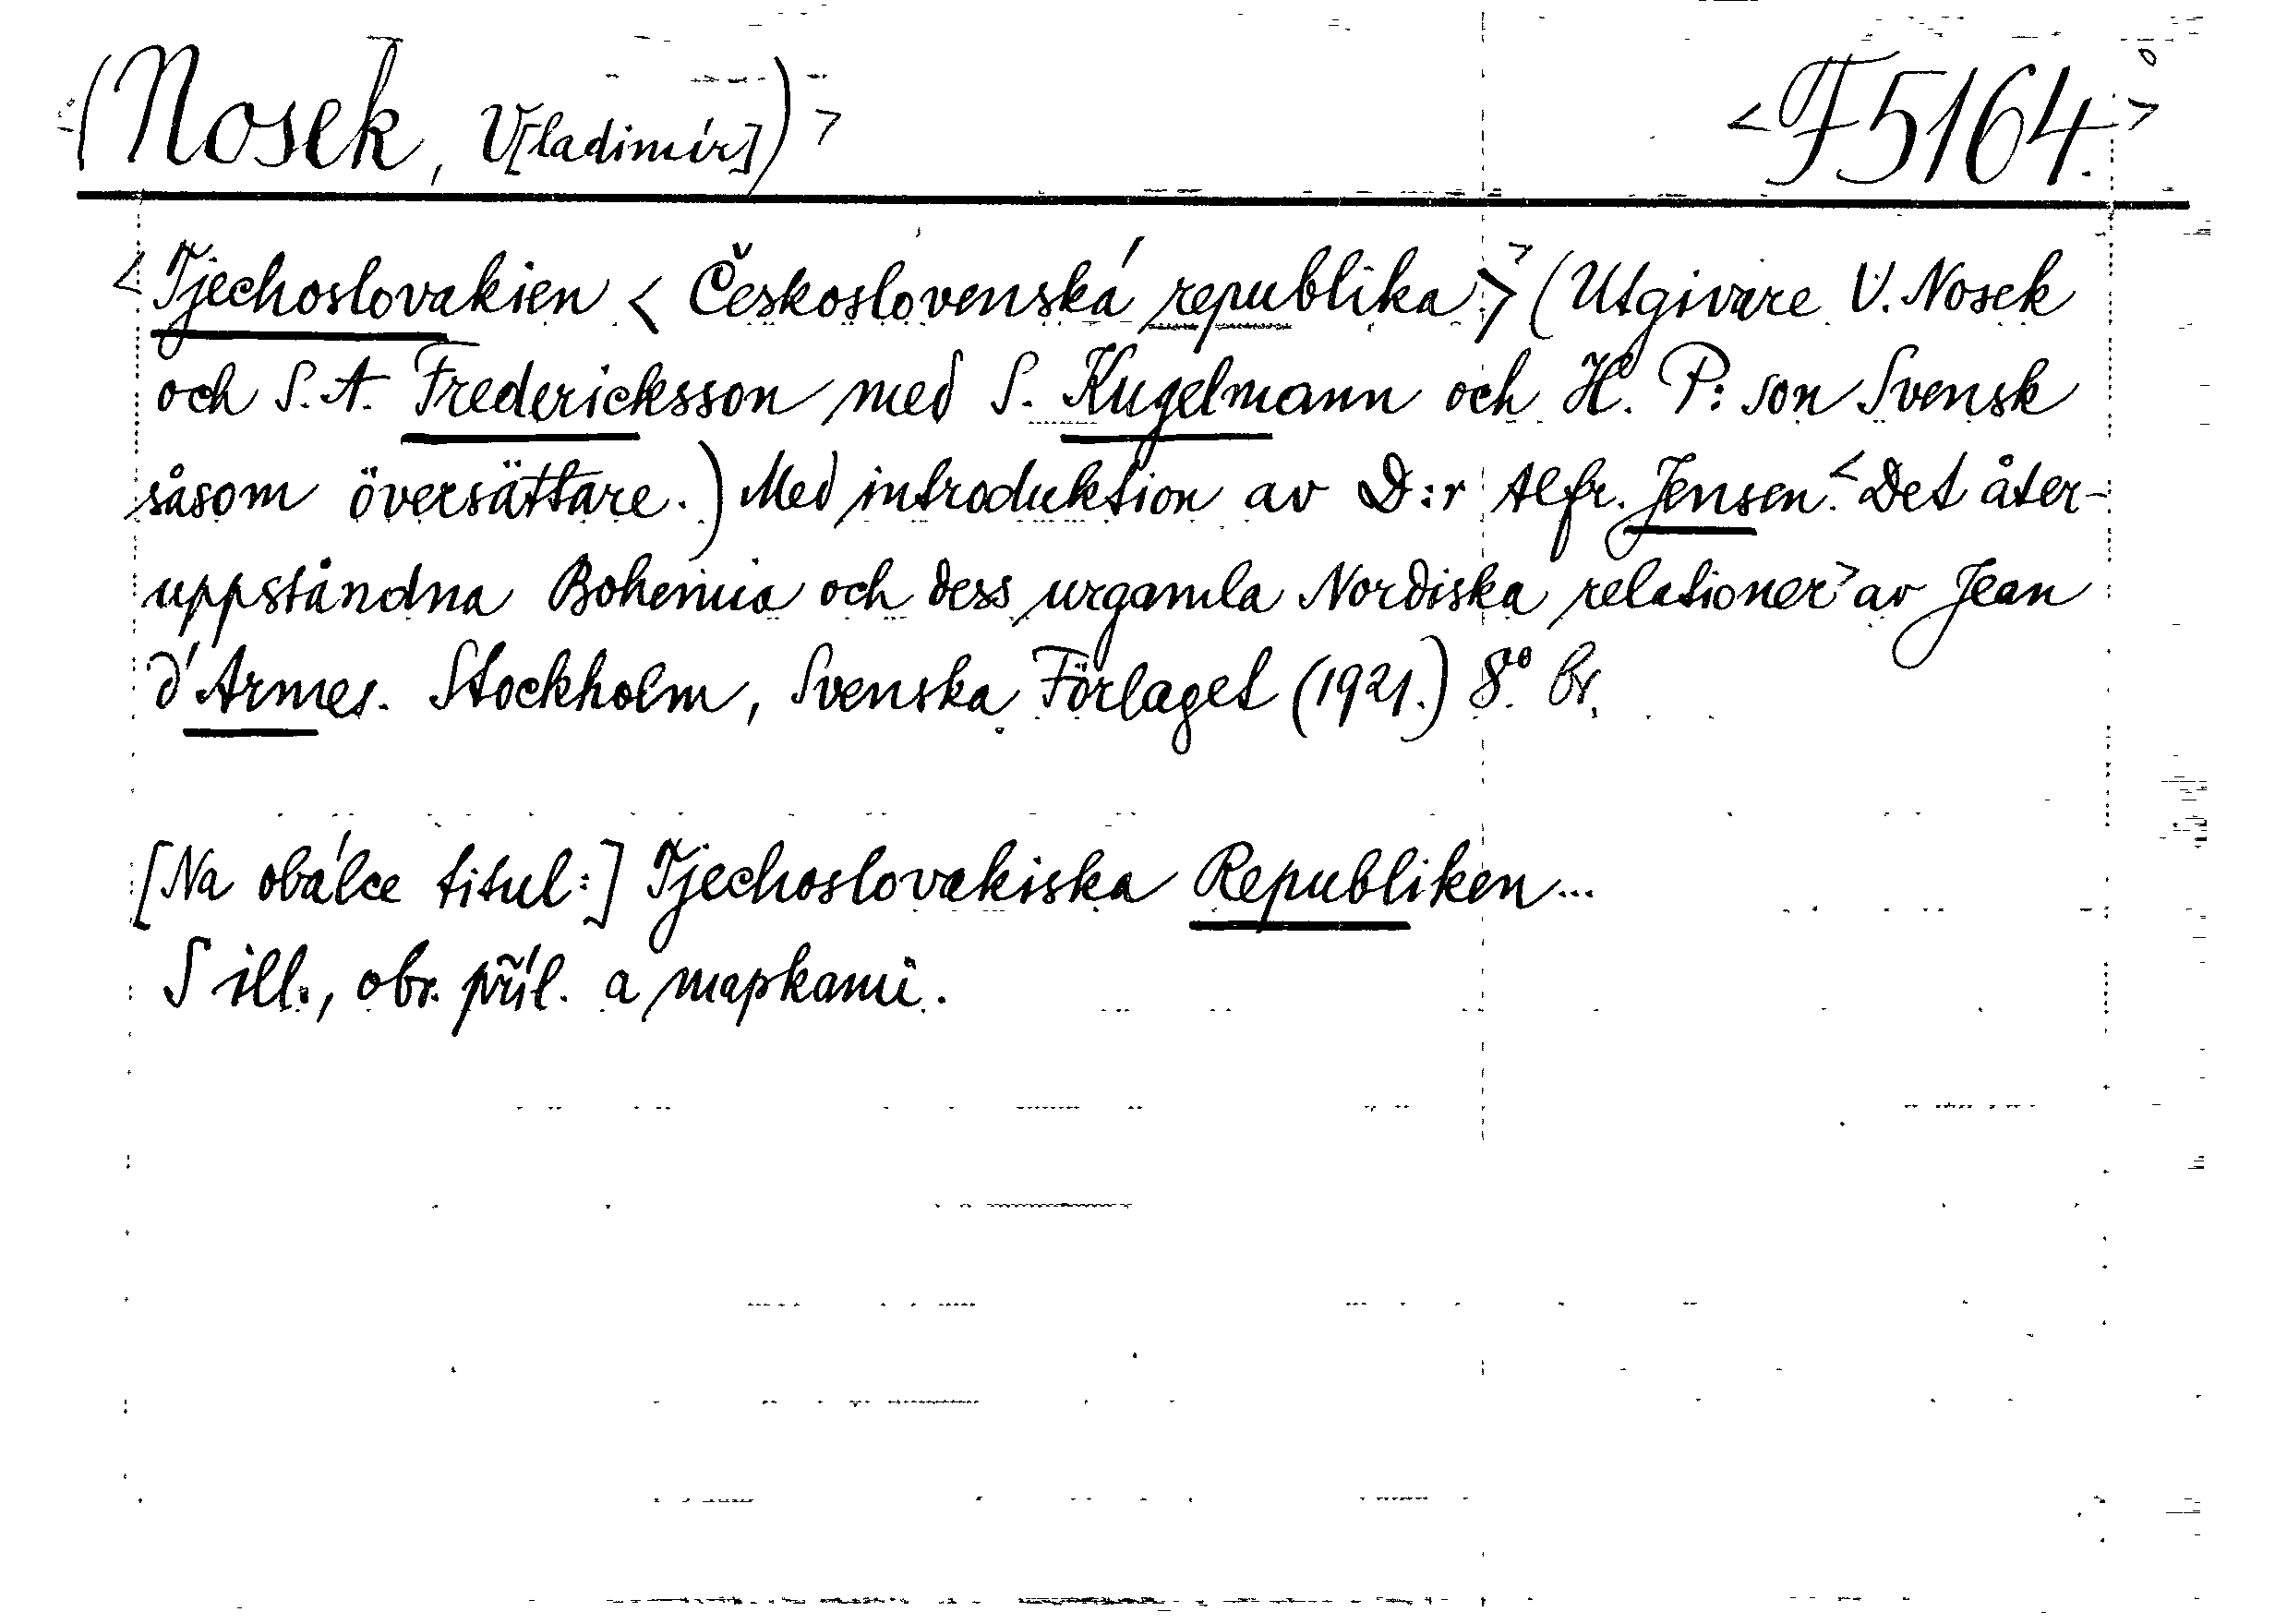 (Nosek, V[ladimír]) > < F 5164. >
< Tjechoslovakien < Československá republika > > (Utgivare V. Nosek
och S. A. Fredericksson med S. Kugelmann och H. P:son Svensk
såsom översättare.) Med introduktion av D:r Alfr. Jensen. < Det åter-
uppståndna Bohemia och dess urgamla Nordiska relationer > av Jean
d'Armes. Stockholm, Svenska Förlaget (1921.) 8° br.
[Na obálce titul:] Tjechoslovakiska Republiken...
S ill., obr. příl. a mapkami.